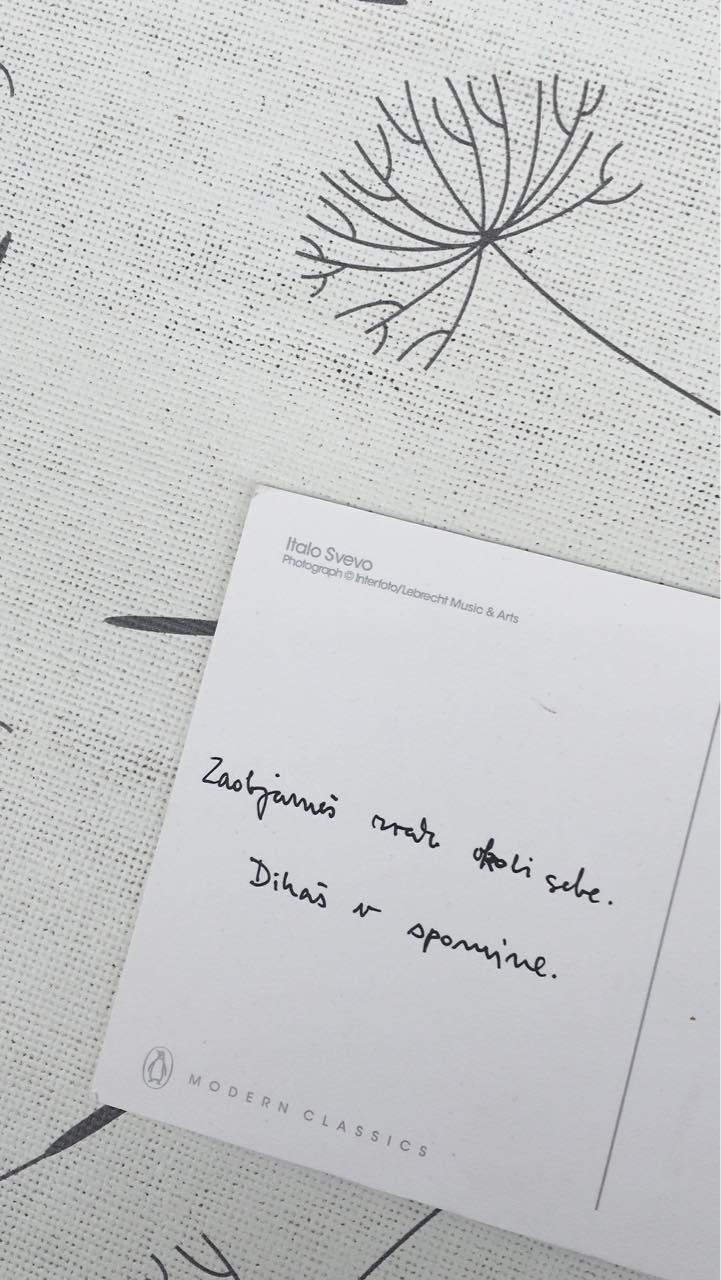 Italo Svevo
Photograph © Interfoto/Lebrecht Music & Arts
Zaobjameš zrak okoli sebe.
Dihaš v spomine.
MODERN CLASSICS